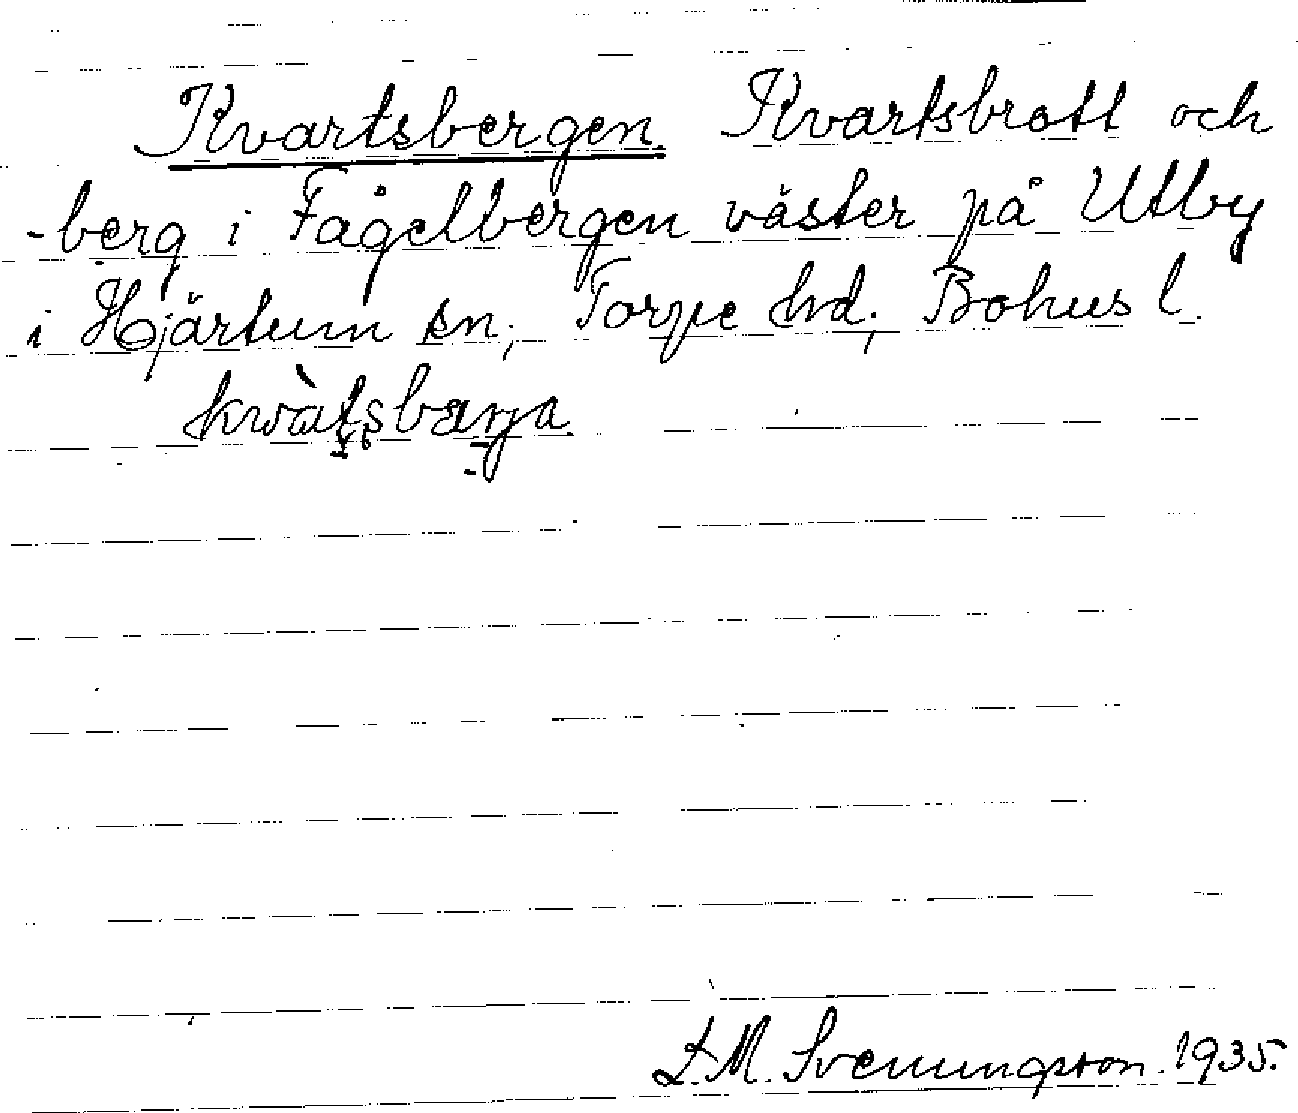 Kvartsbergen. Kvartsbrott och
-berg i Fågelbergen väster på Utby
i Hjärtum sn, Torpe hd, Bohus l.
kwàtsbærja
L. M. Svenungsson. 1935.